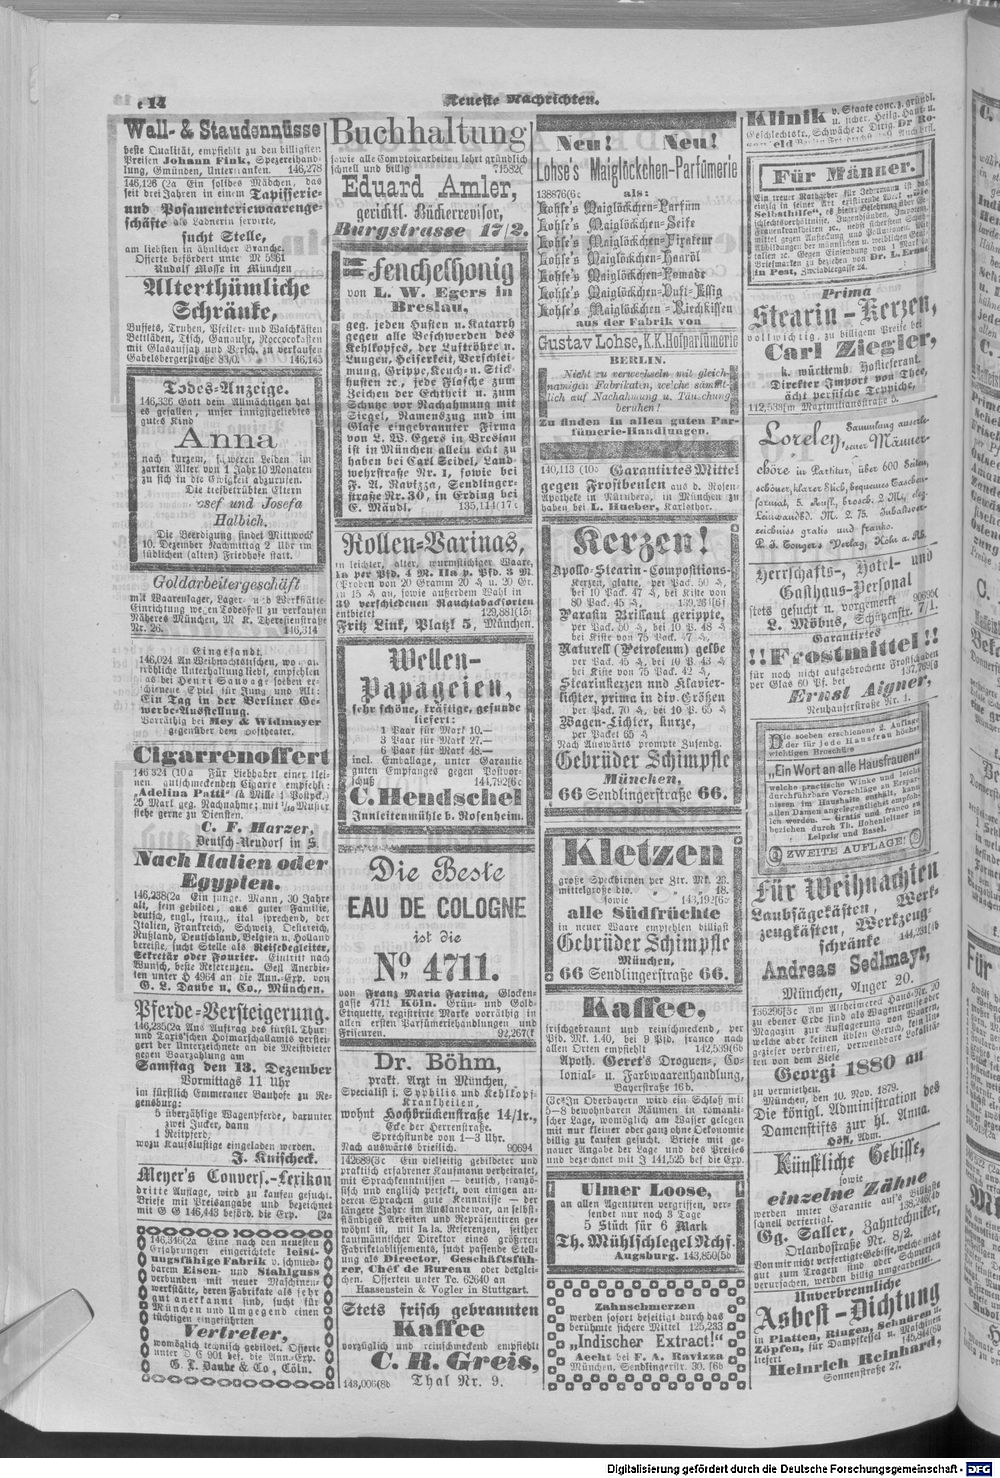 14
Neueste Nachrichten.
Wall- & Staudennüsse
beste Qualität, empfiehlt zu den billigsten
Preisen Johann Fink, Spezereihand-
lung, Gmünden, Unterfranken. 146,278
146,126 (2a Ein solides Mädchen, das
seit drei Jahren in einem Tapisserie-
und Posamenteriewaarenge-
schäfte als Ladnerin servirte,
sucht Stelle,
am liebsten in ähnlicher Branche.
Offerte befördert unte M 5961
Rudolf Mosse in München
Alterthümliche
Schränke,
Buffets, Truhen, Pfeiler- und Waschkästen
Bettläden, Tisch, Ganauhr, Roccocokasten
mit Glasaufsatz und Versch. zu verkaufen
Gabelsbergerstraße 83/0. 146,145
Todes-Anzeige.
146,336 Gott dem Allmächtigen hat
es gefallen, unser innigstgeliebtes
gutes Kind
Anna
nach kurzem, schweren Leiden im
zarten Alter von 1 Jahr 10 Monaten
zu sich in die Ewigkeit abzurufen.
Die tiefbetrübten Eltern
Josef und Josefa
Halbich.
Die Beerdigung findet Mittwoch
10. Dezember Nachmittag 2 Uhr im
südlichen (alten) Friedhofe statt.
Goldarbeitergeschäft
mit Waarenlager, Lager- und Werkstätte-
Einrichtung wegen Todesfall zu verkaufen
Näheres München, M K. Theresienstraße
Nr. 26. 146,314
Eingesandt.
146,024 An Weihnachtstischen, wo man
fröhliche Unterhaltung liebt, empfehlen
als bei Henri Sauvage soeben er-
schienene Spiel für Jung und Alt:
Ein Tag in der Berliner Ge-
werbe-Ausstellung.
Vorräthig bei Mey & Widmayer
gegenüber dem Hoftheater.
Cigarrenoffert
146 324 (10a Für Liebhaber einer klei-
nen gutschmeckenden Cigarre empfiehlt
„Adelina Patti“ (à Mille 1 Postpck.)
25 Mark geg. Nachnahme; mit 1/10 Muster
stehe gerne zu Diensten.
C. F. Harzer,
Deutsch-Neudorf in S.
Nach Italien oder
Egypten.
146,238(2a Ein junge. Mann, 30 Jahre
alt, fein gebildet, aus guter Familie,
deutsch, engl., franz., ital sprechend, der
Italien, Frankreich, Schweiz, Oesterreich,
Rußland, Deutschland, Belgien u. Holland
bereiste, sucht Stelle als Reisebegleiter,
Sekretär oder Fourier. Eintritt nach
Wunsch, beste Referenzen. Gefl Anerbie-
ten unter H 4964 an die Ann.-Exp. von
G. L. Daube u. Co., München.
Pferde-Versteigerung.
146,235(2a Aus Auftrag des fürstl. Thurn
und Taxis'schen Hofmarschallamts verstei-
gert der Unterzeichnete an die Meistbieter
gegen Baarzahlung am
Samstag den 13. Dezember
Vormittags 11 Uhr
im fürstlich Emmeraner Bauhofe zu Re-
gensburg:
5 überzählige Wagenpferde, darunter
zwei Jucker, dann
1 Reitpferd,
wozu Kaufslustige eingeladen werden.
J. Knischeck.
Meyer's Convers.-Lexikon
dritte Auflage, wird zu kaufen gesucht.
Briefe mit Preisangabe und bezeichnet
mit G G 146,443 beförd. die Exp. [2a
146,346(2a Eine nach den neuesten
Erfahrungen eingerichtete leist-
ungsfähige Fabrik v. schmied-
barem Eisen- und Stahlguss
verbunden mit neuer Maschinen-
werkstätte, deren Fabrikate als sehr
gut anerkannt sind, sucht für
München und Umgegend einen
tüchtigen eingeführten
Vertreter,
womöglich technisch gebildet. Offerte
unter D G 901 bef. die Ann.-Exp.
G. L. Daube & Co, Cöln.
Buchhaltung
sowie alle Comptoirarbeiten lehrt gründlich
schnell und billig 71582(
Eduard Amler,
gerichtl. Bücherrevisor,
Burgstrasse 17/2.
Fenchelhonig
von L. W. Egers in
Breslau,
geg. jeden Husten u. Katarrh
gegen alle Beschwerden des
Kehlkopfes, der Luftröhre u.
Lungen, Heiserkeit, Verschlei-
mung, Grippe, Keuch- u. Stick-
husten &c., jede Flasche zum
Zeichen der Echtheit u. zum
Schutze vor Nachahmung mit
Siegel, Namenszug und im
Glase eingebrannter Firma
von L. W. Egers in Breslau
ist in München allein echt zu
haben bei Carl Seidel, Land-
wehrstraße Nr. 1, sowie bei
F. A. Ravizza, Sendlinger-
straße Nr. 30, in Erding bei
E. Mändl. 135,114(17c
Rollen-Varinas,
in leichter, alter, wurmstichiger Waare,
Ia per Pfd. 4 M. IIa p. Pfd. 3 M.
(Proben von 20 Gramm 20 ₰ u. 20 Gr.
zu 15 ₰), sowie außerdem Wahl in
39 verschiedenen Rauchtabaksorten
entbietet 129,881(15c
Fritz Link, Platzl 5, München.
Wellen-
Papageien,
sehr schöne, kräftige, gesunde
liefert:
1 Paar für Mark 10.—
3 Paar für Mark 27.—
6 Paar für Mark 48.—
incl. Emballage, unter Garantie
guten Empfanges gegen Postvor-
schuß 144,792(6c
C. Hendschel
Innleitenmühle b. Rosenheim.
Die Beste
EAU DE COLOGNE
ist die
No 4711.
von Franz Maria Farina, Glocken-
gasse 4711 Köln. Grün- und Gold-
Etiquette, registrirte Marke vorräthig in
allen ersten Parfümeriehandlungen und
Friseuren. 92,267(f
Dr. Böhm,
prakt. Arzt in München,
Specialist f. Syphilis und Kehlkopf-
Krankheiten,
wohnt Hochbrückenstraße 14/1r.,
Ecke der Herrenstraße.
Sprechstunde von 1—3 Uhr.
Nach auswärts brieflich. 90694
142689(3c Ein vielseitig gebildeter und
praktisch erfahrener Kaufmann verheiratet,
mit Sprachkenntnissen — deutsch, franzö-
sisch und englisch perfekt, von einigen an-
deren Sprachen gute Kenntnisse — der
längere Jahre im Auslande war, an selbst-
ständiges Arbeiten und Repräsentiren ge-
wöhnt ist, mit Ia Ia. Referenzen, seither
kaufmännischer Direktor eines größeren
Fabriketablissements, sucht passende Stell-
ung als Director, Geschäftsfüh-
rer, Chef de Bureau oder derglei-
chen. Offerten unter To. 62640 an
Haasenstein & Vogler in Stuttgart.
Stets frisch gebrannten
Kaffee
vorzüglich und reinschmeckend empfiehlt
C. R. Greis,
143,006(8b Thal Nr. 9.
Neu! Neu!
Lohse's Maiglöckchen-Parfümerie
138876(6c als:
Lohse's Maiglöckchen-Parfüm
Lohse's Maiglöckchen-Seife
Lohse's Maiglöckchen-Fixateur
Lohse's Maiglöckchen-Haaröl
Lohse's Maiglöckchen-Pomade
Lohse's Maiglöckchen-Duft-Essig
Lohse's Maiglöckchen-Riechkissen
aus der Fabrik von
Gustav Lohse, K.K. Hofparfümerie
BERLIN.
Nicht zu verwechseln mit gleich-
namigen Fabrikaten, welche sämmt-
lich auf Nachahmung u. Täuschung
beruhen!
Zu finden in allen guten Par-
fümerie-Handlungen.
140,113 (10c Garantirtes Mittel
gegen Frostbeulen aus d. Rosen-
Apotheke in Nürnberg, in München zu
haben bei L. Hueber, Karlsthor.
Kerzen!
Apollo-Stearin-Compositions-
Kerzen, glatte, per Pac. 50 ₰,
bei 10 Pack 47 ₰, bei Kiste von
80 Pac. 45 ₰, 139,261(6f
Parafin Brillant gerippte,
per Pac. 50 ₰, bei 10 P. 48 ₰
bei Kiste von 75 Pac. 47 ₰,
Naturell (Petroleum) gelbe
per Pac. 45 ₰, bei 10 P. 43 ₰
bei Kiste von 75 Pac. 42 ₰,
Stearinkerzen und Klavier-
lichter, prima in div. Größen
per Pac. 70 ₰, bei 10 P. 65 ₰
Wagen-Lichter, kurze,
per Packet 65 ₰
Nach Auswärts prompte Zusendg.
Gebrüder Schimpfle
München,
66 Sendlingerstraße 66.
Kletzen
große Speckbirnen per Ztr. Mk. 23.
mittelgroße dto. „ „ „ 18.
sowie 143,192(6c
alle Südfrüchte
in neuer Waare empfehlen billigst
Gebrüder Schimpfle
München,
66 Sendlingerstraße 66.
Kaffee,
frischgebrannt und reinschmeckend, per
Pfd. Mk. 1.40, bei 9 Pfd. franco nach
allen Orten empfiehlt 142,539(6b
Apoth. Geret's Droguen-, Co-
lonial- u. Farbwaarenhandlung,
Bayerstraße 16b.
(3c In Oberbayern wird ein Schloß mit
5—8 bewohnbaren Räumen in romanti-
scher Lage, womöglich am Wasser gelegen
mit nur kleiner oder ganz ohne Oekonomie
billig zu kaufen gesucht. Briefe mit ge-
nauer Angabe der Lage und des Preises
und bezeichnet mit J 141,525 bef die Exp.
Ulmer Loose,
an allen Agenturen vergriffen, ver-
sendet nur noch 3 Tage
5 Stück für 6 Mark
Th. Mühlschlegel Nchf.
Augsburg. 143,850(5b
Zahnschmerzen
werden sofort beseitigt durch das
berühmte sichere Mittel 125,233
„Indischer Extract!“
Aecht bei F. A. Ravizza
München, Sendlingerstr. 30. (6b
Klinik v. Staate conc. z. gründl.
u. sicher. Heilg. Haut- u.
Geschlechtskr., Schwäche &c Dirig. Dr Ro-
Für Männer.
Ein treuer Rathgeber für Jedermann ist das
einzig in seiner Art existirende Werk „Die
Selbsthilfe“, es bietet Belehrung über Ge-
schlechtsverhältnisse, Jugendsünden, Impotenz,
Frauenkrankheiten &c., nebst sicherstem Schutz-
mittel gegen Ansteckung und Pollutionen. Mit
Abbildungen der männlichen u. weiblichen Geni-
talien &c. Gegen Einsendung von 1 Mark in
Briefmarken zu beziehen von Dr. L. Ernst
in Pest, Zweiadlergasse 24.
Prima
Stearin-Kerzen,
vollwichtig, zu billigem Preise bei
Carl Ziegler,
k. württemb. Hoflieferant.
Direkter Import von Thee,
ächt persische Teppiche,
112,538[m Maximiliansstraße 5.
Loreley, Sammlung auserle-
sener Männer-
chöre in Partitur, über 600 Seiten,
schöner, klarer Stich, bequemes Taschen-
format, 5. Aufl., brosch. 2 M., eleg.
Leinwandbd. M. 2. 75. Inhaltsver-
zeichniss gratis und franko.
P. J. Tonger's Verlag, Köln a. Rh.
Herrschafts-, Hotel- und
Gasthaus-Personal
stets gesucht u. vorgemerkt 90696(
L. Möbus, Schützenstr. 7/1.
Garantirtes
!!Frostmittel!!
für noch nicht aufgebrochene Frostschäden
per Glas 60 Pf. bei 137,769(g
Ernst Aigner,
Neuhauserstraße Nr. 1.
Die soeben erschienene 2. Auflage
der für jede Hausfrau höchst
wichtigen Broschüre
„Ein Wort an alle Hausfrauen“
welche praktische Winke und leicht
durchführbare Vorschläge zu Erspar-
nissen im Haushalte enthält, kann
allen Damen angelegentlichst empfoh-
len werden. — Gratis und franco zu
beziehen durch Th. Hohenleitner in
Leipzig und Basel.
ZWEITE AUFLAGE!
Für Weihnachten
Laubsägekästen, Werk-
zeugkästen, Werkzeug-
schränke 144,231(b
Andreas Sedlmayr,
München, Anger 20.
136296[3c Am Altheimereck Haus-Nr. 20
zu ebener Erde sind als Wagenremise oder
Magazin zur Auflagerung von Waaren,
welche aber keinen üblen Geruch, kein Un-
geziefer verbreiten, verwendbare Lokalitä-
ten von dem Ziele
Georgi 1880 an
zu vermiethen.
München, den 10. Nov. 1879.
Die königl. Administration des
Damenstifts zur hl. Anna.
Höß, Adm.
Künstliche Gebisse,
sowie
einzelne Zähne
werden unter Garantie auf's Billigste
schnell verfertigt. 138,246(b
Gg. Saller, Zahntechniker,
Orlandostraße Nr. 8/2.
Von mir nicht verfertigte Gebisse, welche nicht
gut zum Tragen sind oder Schmerzen
verursachen, werden billig umgearbeitet.
Unverbrennliche
Asbest-Dichtung
in Platten, Ringen, Schnüren u.
Zöpfen, für Dampfkessel u. Maschinen
liefert
Heinrich Reinhard,
Sonnenstraße 27.
Digitalisierung gefördert durch die Deutsche Forschungsgemeinschaft - DFG